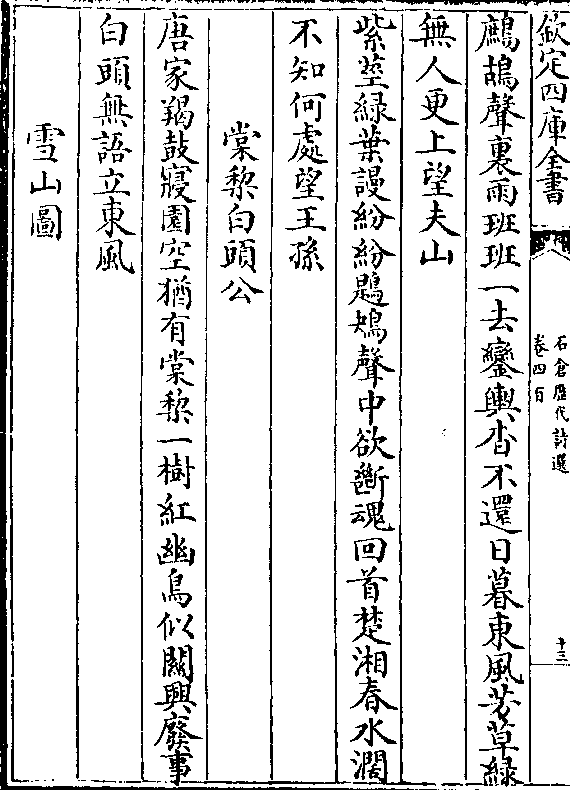 欽定四庫全書
石倉歷代詩選
卷四百
十三
鷓鴣聲裏雨班班一去鑾輿杳不還日暮東風芳草綠
無人更上望夫山
紫莖緑葉謾紛紛鶗鴂聲中欲斷魂回首楚湘春水濶
不知何處望王孫
棠黎白頭公
唐家羯鼓寢園空猶有棠黎一樹紅幽鳥似關興廢事
白頭無語立東風
雪山圖